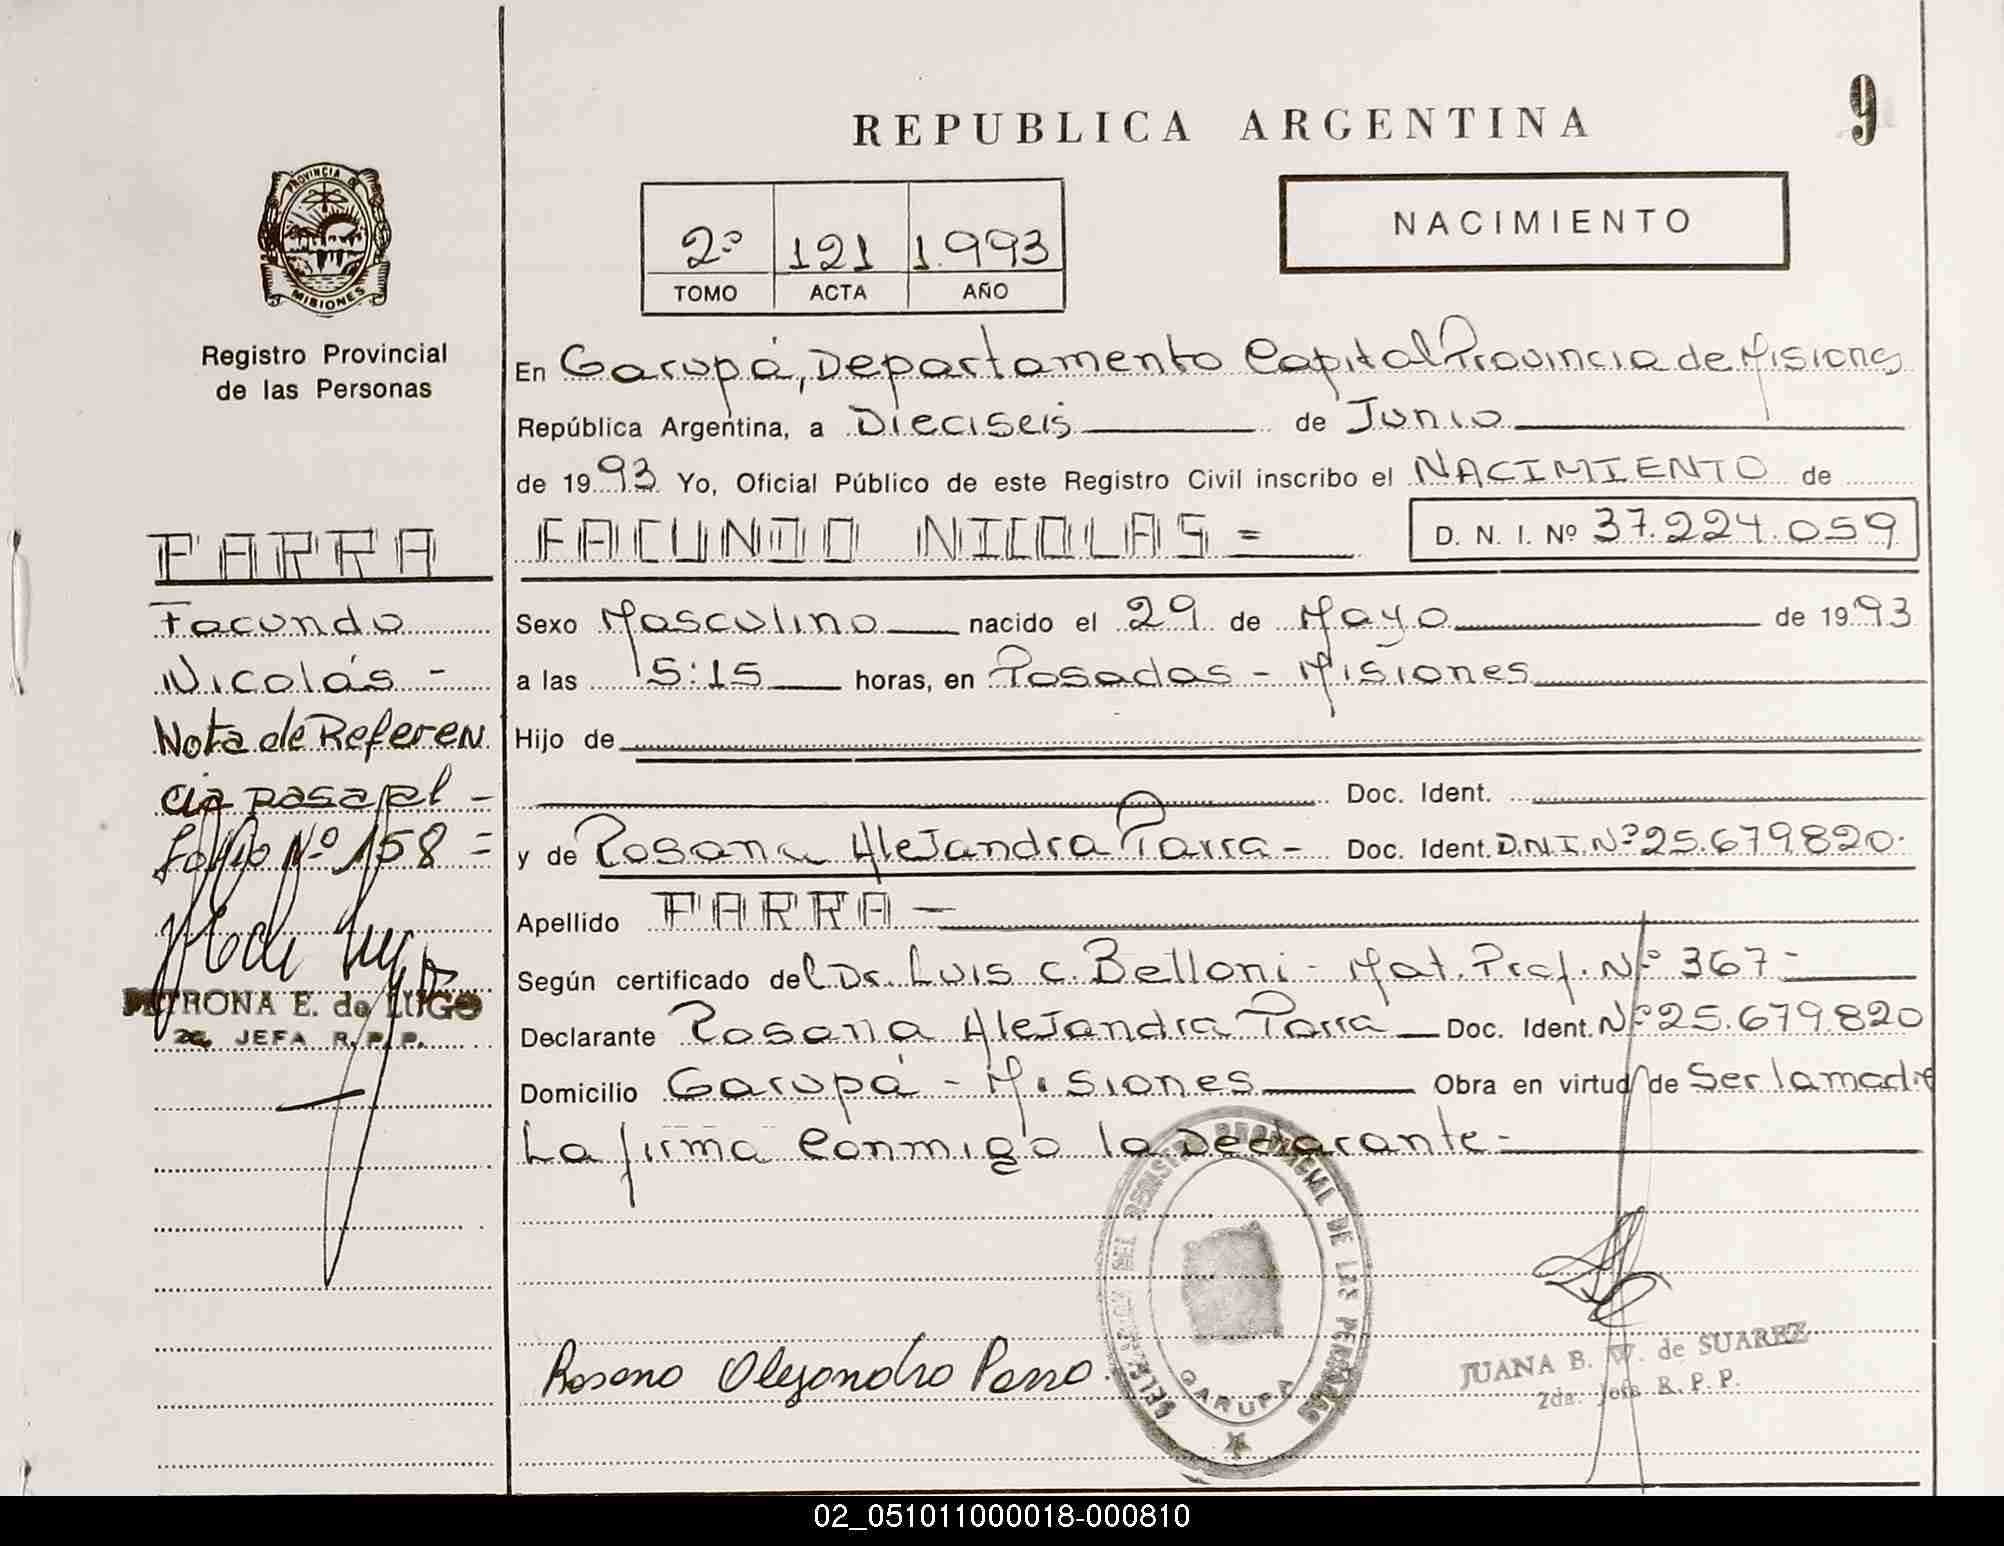 REPUBLICA ARGENTINA
9
PROVINCIA DE
MISIONES
Registro Provincial
de las Personas
2º 121 1.993
TOMO ACTA AÑO
NACIMIENTO
En Garupá, Departamento Capital Provincia de Misiones
República Argentina, a Dieciseis de Junio
de 1993 Yo, Oficial Público de este Registro Civil inscribo el NACIMIENTO de
FACUNDO NICOLAS =
D. N. I. Nº 37.224.059
Sexo Masculino nacido el 29 de Mayo de 1993
a las 5:15 horas, en Posadas - Misiones
Hijo de
Doc. Ident.
y de Rosana Alejandra Parra - Doc. Ident. D.N.I. Nº 25.679820.
Apellido PARRA -
Según certificado del Dr. Luis C. Belloni - Mat. Prof. Nº 367 -
Declarante Rosana Alejandra Parra Doc. Ident. Nº 25.679.820
Domicilio Garupá - Misiones Obra en virtud de Ser la madre
La firma Conmigo la Declarante -
PARRA
Facundo
Nicolás -
Nota de Referen
cia pasa al -
Folio Nº 158 =
PETRONA E. de LUGO
JEFA R. P. P.
Rosana Alejandra Parra.
REGISTRO PROVINCIAL DE LAS PERSONAS
GARUPA
JUANA B. W. de SUAREZ
2da. Jefa R. P. P.
02_051011000018-000810